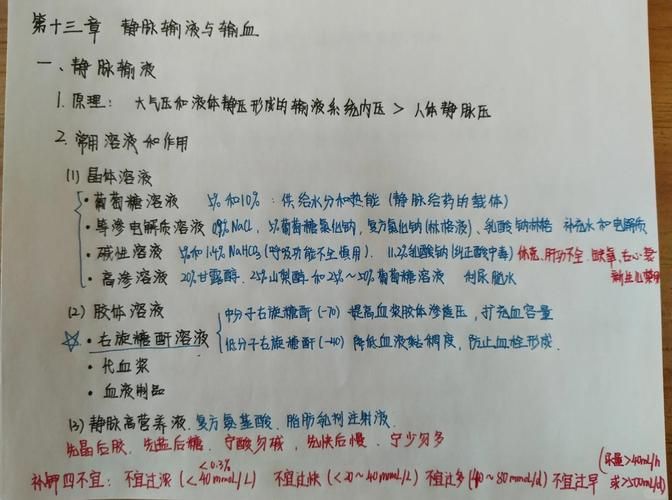 第十三章 静脉输液与输血
一、静脉输液
1. 原理： 大气压和液体静压形成的输液系统内压 > 人体静脉压
2. 常用溶液和作用
(1) 晶体溶液
· 葡萄糖溶液 5%和10%：供给水分和热能（静脉给药的载体）
· 等渗电解质溶液 0.9% NaCl、5%葡萄糖氯化钠、复方氯化钠(林格液)、乳酸钠林格 补充水和电解质
· 碱性溶液 5%和1.4% NaHCO3 (呼吸功能不全慎用)、11.2%乳酸钠(纠正酸中毒) 休克、肝功不全、缺氧、右心衰
新生儿禁用
· 高渗溶液 20%甘露醇、25%山梨醇和25%~50%葡萄糖溶液 利尿脱水
(2) 胶体溶液
☆· 右旋糖酐溶液
中分子右旋糖酐(-70) 提高血浆胶体渗透压，扩充血容量
低分子右旋糖酐(-40) 降低血液黏稠度，防止血栓形成.
· 代血浆
· 血液制品
(3) 静脉高营养液. 复方氨基酸、脂肪乳剂注射液.
先晶后胶、先盐后糖、宁酸勿碱、先快后慢、宁少勿多
补钾四不宜：不宜过浓 (<40mmol/L) 不宜过快 (<20~40mmol/L) 不宜过多 (40~80mmol/d) 不宜过早
<0.3%
(尿量>40mL/h
或>500mL/d)